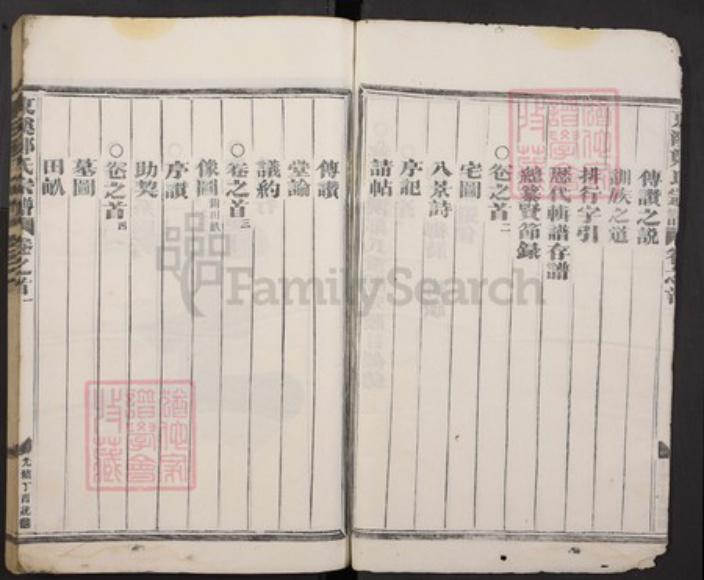 傳讚之說
訓族之道
排行字引
歷代輯譜存譜
總纂賢節錄
○卷之首二
宅圖
八景詩
序記
請帖
傳讚
堂論
議約
○卷之首三
像圖
序讚
助契
○卷之首四
墓圖
田畝
氏宗譜 卷之首一
光緒丁酉
FamilySearch